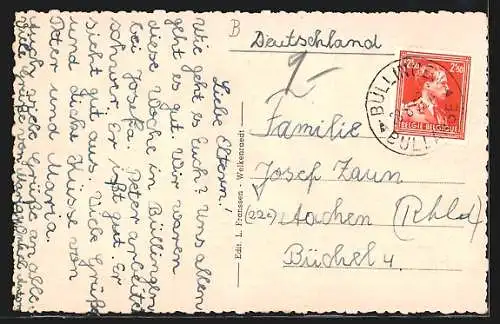 Liebe Eltern!
Wie geht es Euch? Uns allen
geht es gut. Wir waren
diese Woche in Büllingen
bei Josefa. Peter arbeitet
schwer. Er ißt gut. Er
sieht gut aus. Viele Grüße
und dicke Küsse von
Peter und Maria.
Auch viele Grüße an alle.
Viele Grüße von
B
Deutschland
2-
Familie
Josef Zaun
(22c) Aachen (Rhld)
Büchel 4
Edit. L. Franssen - Welkenraedt
BÜLLINGEN
BULLANGE
2F50 2F50
BELGIE BELGIQUE